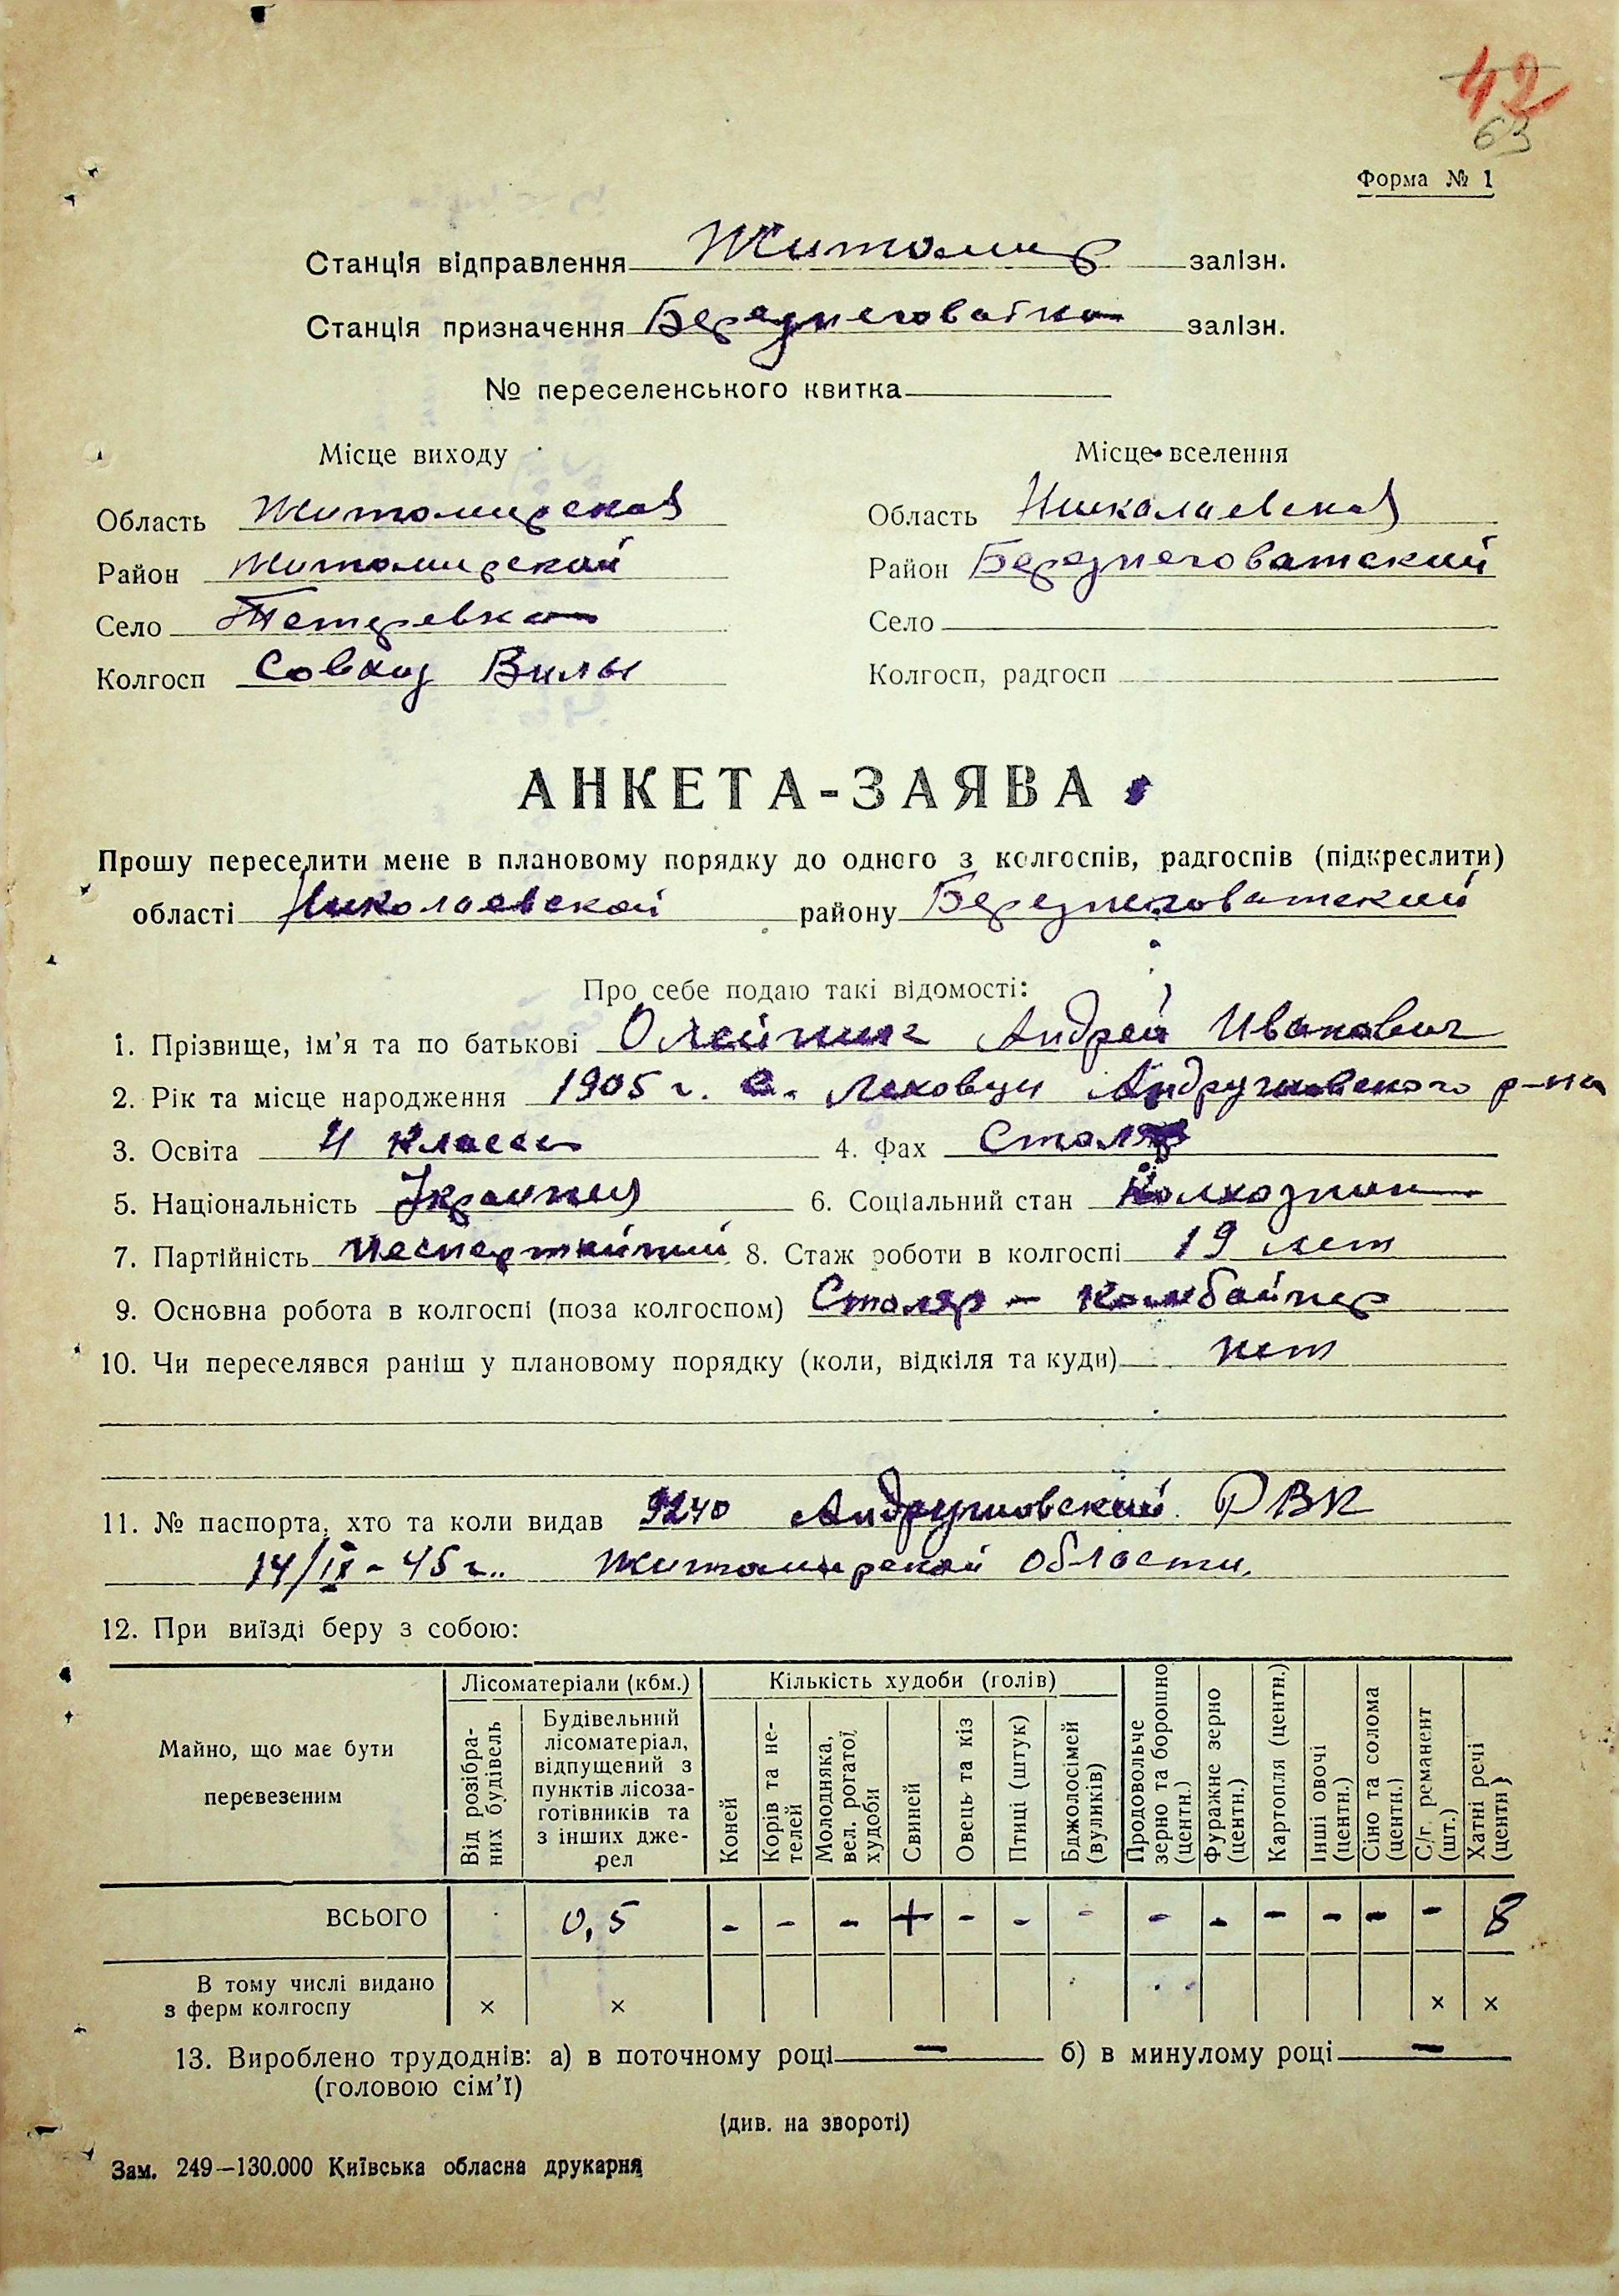 42
63
Форма № 1
Станція відправлення Житомир залізн.
Станція призначення Березнеговатка залізн.
№ переселенського квитка
Місце виходу Місце вселення
Область Житомирская Область Николаевская
Район Житомирский Район Березнеговатский
Село Тетеревка Село
Колгосп Совхоз Вилы Колгосп, радгосп
АНКЕТА-ЗАЯВА
Прошу переселити мене в плановому порядку до одного з колгоспів, радгоспів (підкреслити)
області Николаевской району Березнеговатский
Про себе подаю такі відомості:
1. Прізвище, ім'я та по батькові Олейник Андрей Иванович
2. Рік та місце народження 1905 г. с. Лековци Андрушовского р-на
3. Освіта 4 класса 4. Фах Столяр
5. Національність Украинец 6. Соціальний стан Колхозник
7. Партійність Беспартийный 8. Стаж роботи в колгоспі 19 лет
9. Основна робота в колгоспі (поза колгоспом) Столяр - комбайнер
10. Чи переселявся раніш у плановому порядку (коли, відкіля та куди) нет
11. № паспорта, хто та коли видав 9240 Андрушовский РВК
14/IX - 45 г. Житомирской области.
12. При виїзді беру з собою:
Майно, що має бути перевезеним
Лісоматеріали (кбм.)
Від розібраних будівель
Будівельний лісоматеріал, відпущений з пунктів лісозаготівників та з інших джерел
Кількість худоби (голів)
Коней
Корів та нетелей
Молодняка, вел. рогатої худоби
Свиней
Овець та кіз
Птиці (штук)
Бджолосімей (вуликів)
Продовольче зерно та борошно (центн.)
Фуражне зерно (центн.)
Картопля (центн.)
Інші овочі (центн.)
Сіно та солома (центн.)
С/г. реманент (шт.)
Хатні речі (центн)
ВСЬОГО 0,5 - - - + - - - - - - - - - 8
В тому числі видано
з ферм колгоспу × × × ×
13. Вироблено трудоднів: а) в поточному році — б) в минулому році —
(головою сім'ї)
(див. на звороті)
Зам. 249—130.000 Київська обласна друкарня